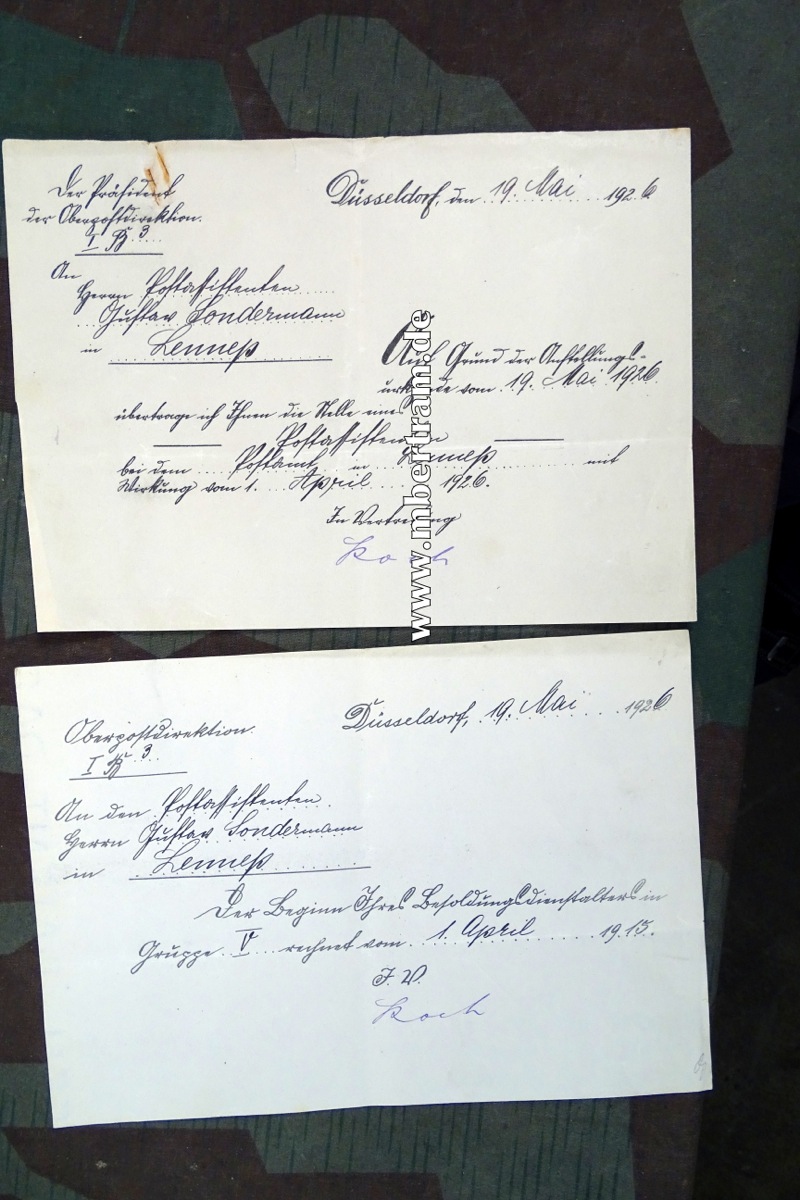 Der Präsident
der Oberpostdirektion.
I B 3
Düsseldorf, den 19. Mai 1926
An
Herrn Postassistenten
Gustav Sondermann
in Lennep
Auf Grund der Anstellungs-
urkunde vom 19. Mai 1926
übertrage ich Ihnen die Stelle eines
Postassistenten
bei dem Postamt in Lennep mit
Wirkung vom 1. April 1926.
In Vertretung
Koch
www.mbertram.de
Oberpostdirektion.
I B 3
Düsseldorf, 19. Mai 1926
An den Postassistenten
Herrn Gustav Sondermann
in Lennep
Der Beginn Ihres Besoldungsdienstalters in
Gruppe V rechnet vom 1. April 1915.
I. V.
Koch